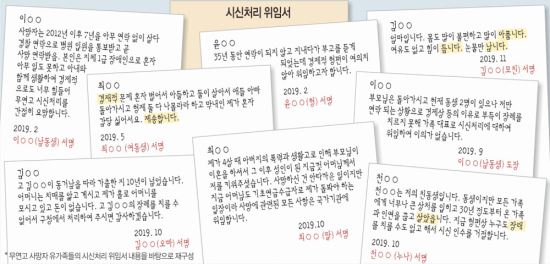 시신처리 위임서
이○○
사망자는 2012년 이후 7년을 아무 연락 없이 살다
경찰 연락으로 병원 입원을 통보받고 곧
사망 연락받음. 본인은 지체1급 장애인으로 혼자
아무 일도 못하고 아내와
함께 생활하여 경제적
으로도 너무 힘들어
무연고 시신처리를
간절히 요망합니다.
2019. 2
이○○(남동생) 서명
최○○
경제적 문제 혼자 벌어서 아들하고 둘이 살아서 애들 아빠
돌아가시고 형제 둘 다 나몰라라 하고 막내인 제가 혼자
감당 싫어서요. 죄송합니다.
2019. 5
최○○(여동생) 서명
윤○○
35년 동안 연락이 되지 않고 지내다가 부고를 듣게
되었는데 경제적 형편이 여의치
않아 위임하고자 합니다.
2019. 2
윤○○(형) 서명
김○○
엄마입니다. 몸도 많이 불편하고 많이 아픕니다.
여유도 없고 힘이 듭니다. 눈물만 납니다.
2019. 11
김○○(모친) 서명
이○○
부모님은 돌아가시고 현재 동생 2명이 있으나 저만
연락 되는 상황으로 경제상 등의 이유로 부득이 장례를
치르지 못해 가족 대표로 시신처리에 대하여
위임하여 이의가 없습니다.
2019. 9
이○○(남동생) 도장
김○○
고 김○○이 동거남을 따라 가출한 지 10년이 넘었습니다.
어머니는 치매를 앓고 계시고 제가 홀로 어머니를
모시고 있고 돈이 없습니다. 고 김○○의 장례를 치를 수
없어서 구청에서 처리하여 주시면 감사하겠습니다.
2019. 10
김○○(오빠) 서명
최○○
제가 4살 때 아버지의 폭력과 생활고로 인해 부모님이
이혼을 하셔서 그 이후 성인이 된 지금껏 어머님께서
저를 키워주셨습니다. 사망하신 건 안타까운 일이지만
지금 어머님도 기초연금수급자로 제가 돌봐야 하는
입장이라 사망에 관련된 모든 사항은 국가기관에
위임합니다.
2019. 10
최○○(딸) 서명
천○○
천○○는 저의 친동생입니다. 동생이지만 모든 가족
에게 너무나 큰 상처를 입히고 30년 정도부터 온 가족
과 인연을 끊고 살았습니다. 지금 형편상 누구도 장례
를 치를 수도 없고 해서 시신 인수를 거절합니다.
2019. 10
천○○(누나) 서명
* 무연고 사망자 유가족들의 시신처리 위임서 내용을 바탕으로 재구성